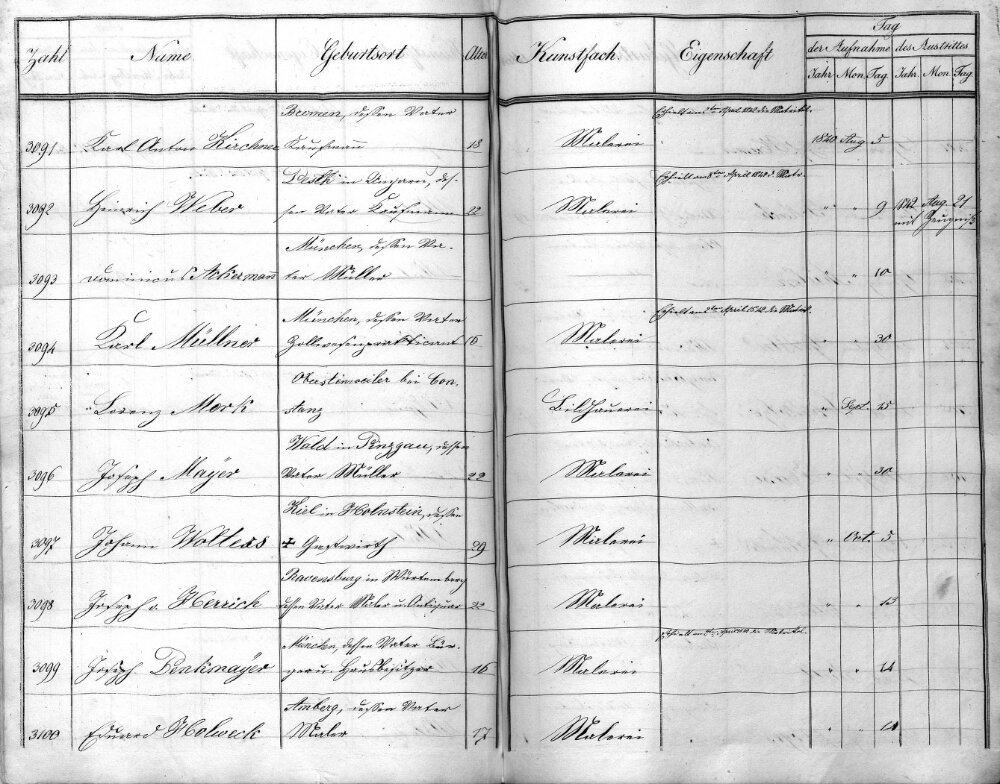 Zahl Name Geburtsort Alter Kunstfach. Eigenschaft Tag
der Aufnahme des Austrittes
Jahr Mon. Tag Jahr. Mon. Tag
Bremen, dessen Vater
3091 Karl Anton Kirchner Kaufmann 18 Malerei 1840 Aug. 5
in Ungarn, des-
3092 Heinrich Weber sen Vater Kaufmann 22 Malerei " " 9 1842 Aug. 21
mit Zeugniß
München, dessen Va-
3093 Dominicus Ackermann ter Müller " " 10
München, dessen Vater
3094 Karl Müllner Zollwesenpraktikant 16 Malerei " " 30
bei Con-
3095 Lorenz stanz Bildhauerei " Sept. 25
Wald in Pinzgau, dessen
3096 Joseph Mayer Vater Müller 22 Malerei " " 30
Kiel in Holnstein, dessen
3097 Johann Wolless + Gastwirth 29 Malerei " Oct. 5
Ravensburg in Würtemberg
3098 Joseph v. Herrich dessen Vater Maler u. Antiquar 22 Malerei " " 13
München, dessen Vater Bür-
3099 Joseph ger u. Hausbesitzer 16 Malerei " "
Amberg, dessen Vater
3100 Eduard Holweck Maler 17 Malerei " "